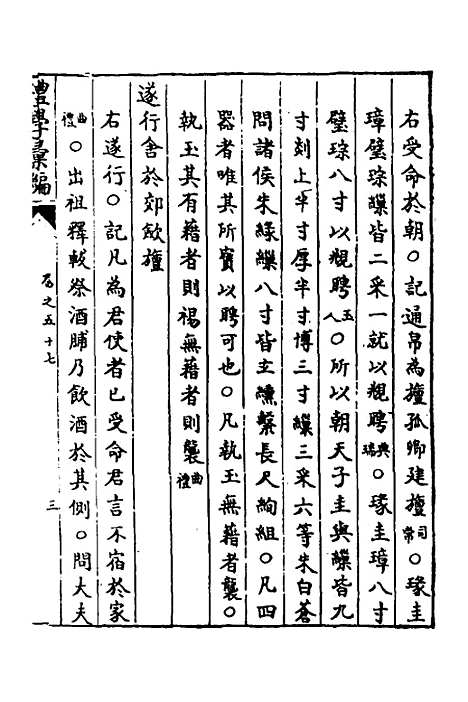 右受命於朝○記通帛為旜孤卿建旜司常○瑑圭
璋璧琮繅皆二采一就以覜聘典瑞○瑑圭璋八寸
璧琮八寸以覜聘玉人○所以朝天子圭與繅皆九
寸剡上半寸厚半寸博三寸繅三采六等朱白蒼
問諸侯朱緑繅八寸皆玄纁繫長尺絢組○凡四
器者唯其所寳以聘可也○凡執玉無藉者襲○
執玉其有藉者則裼無藉者則襲曲禮
遂行舍於郊歛旜
右遂行○記凡為君使者已受命君言不宿於家
曲禮○出祖釋軷祭酒脯乃飲酒於其側○問大夫
禮學彙編
卷之五十七
三